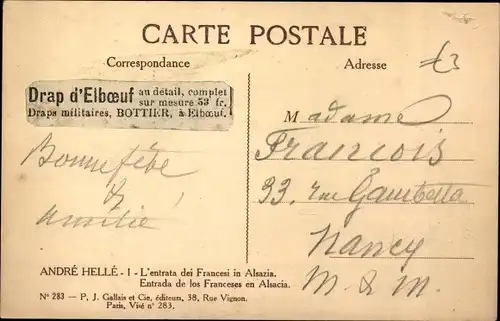 CARTE POSTALE
Correspondance
Adresse
Drap d'Elbœuf au détail, complet
sur mesure 53 fr.
Draps militaires, BOTTIER, à Elbœuf.
Bonne fête
&
amitié
Madame
Francois
33, rue Gambetta
Nancy
M & M.
ANDRÉ HELLÉ - I - L'entrata dei Francesi in Alsazia.
Entrada de los Franceses en Alsacia.
N° 283 — P. J. Gallais et Cie, éditeurs, 38, Rue Vignon.
Paris, Visé n° 283.